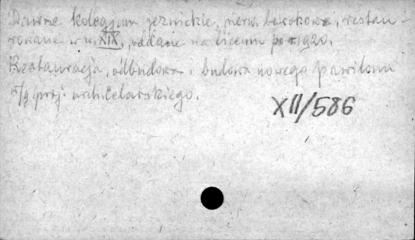 Dawne kolegium jezuickie, pierw. barokowe, restau-
rowane w w. XIX, oddane na liceum po r. 1920.
Restauracja, odbudowa i budowa nowego pawilonu
wg proj. arch. Celarskiego.
XII/586